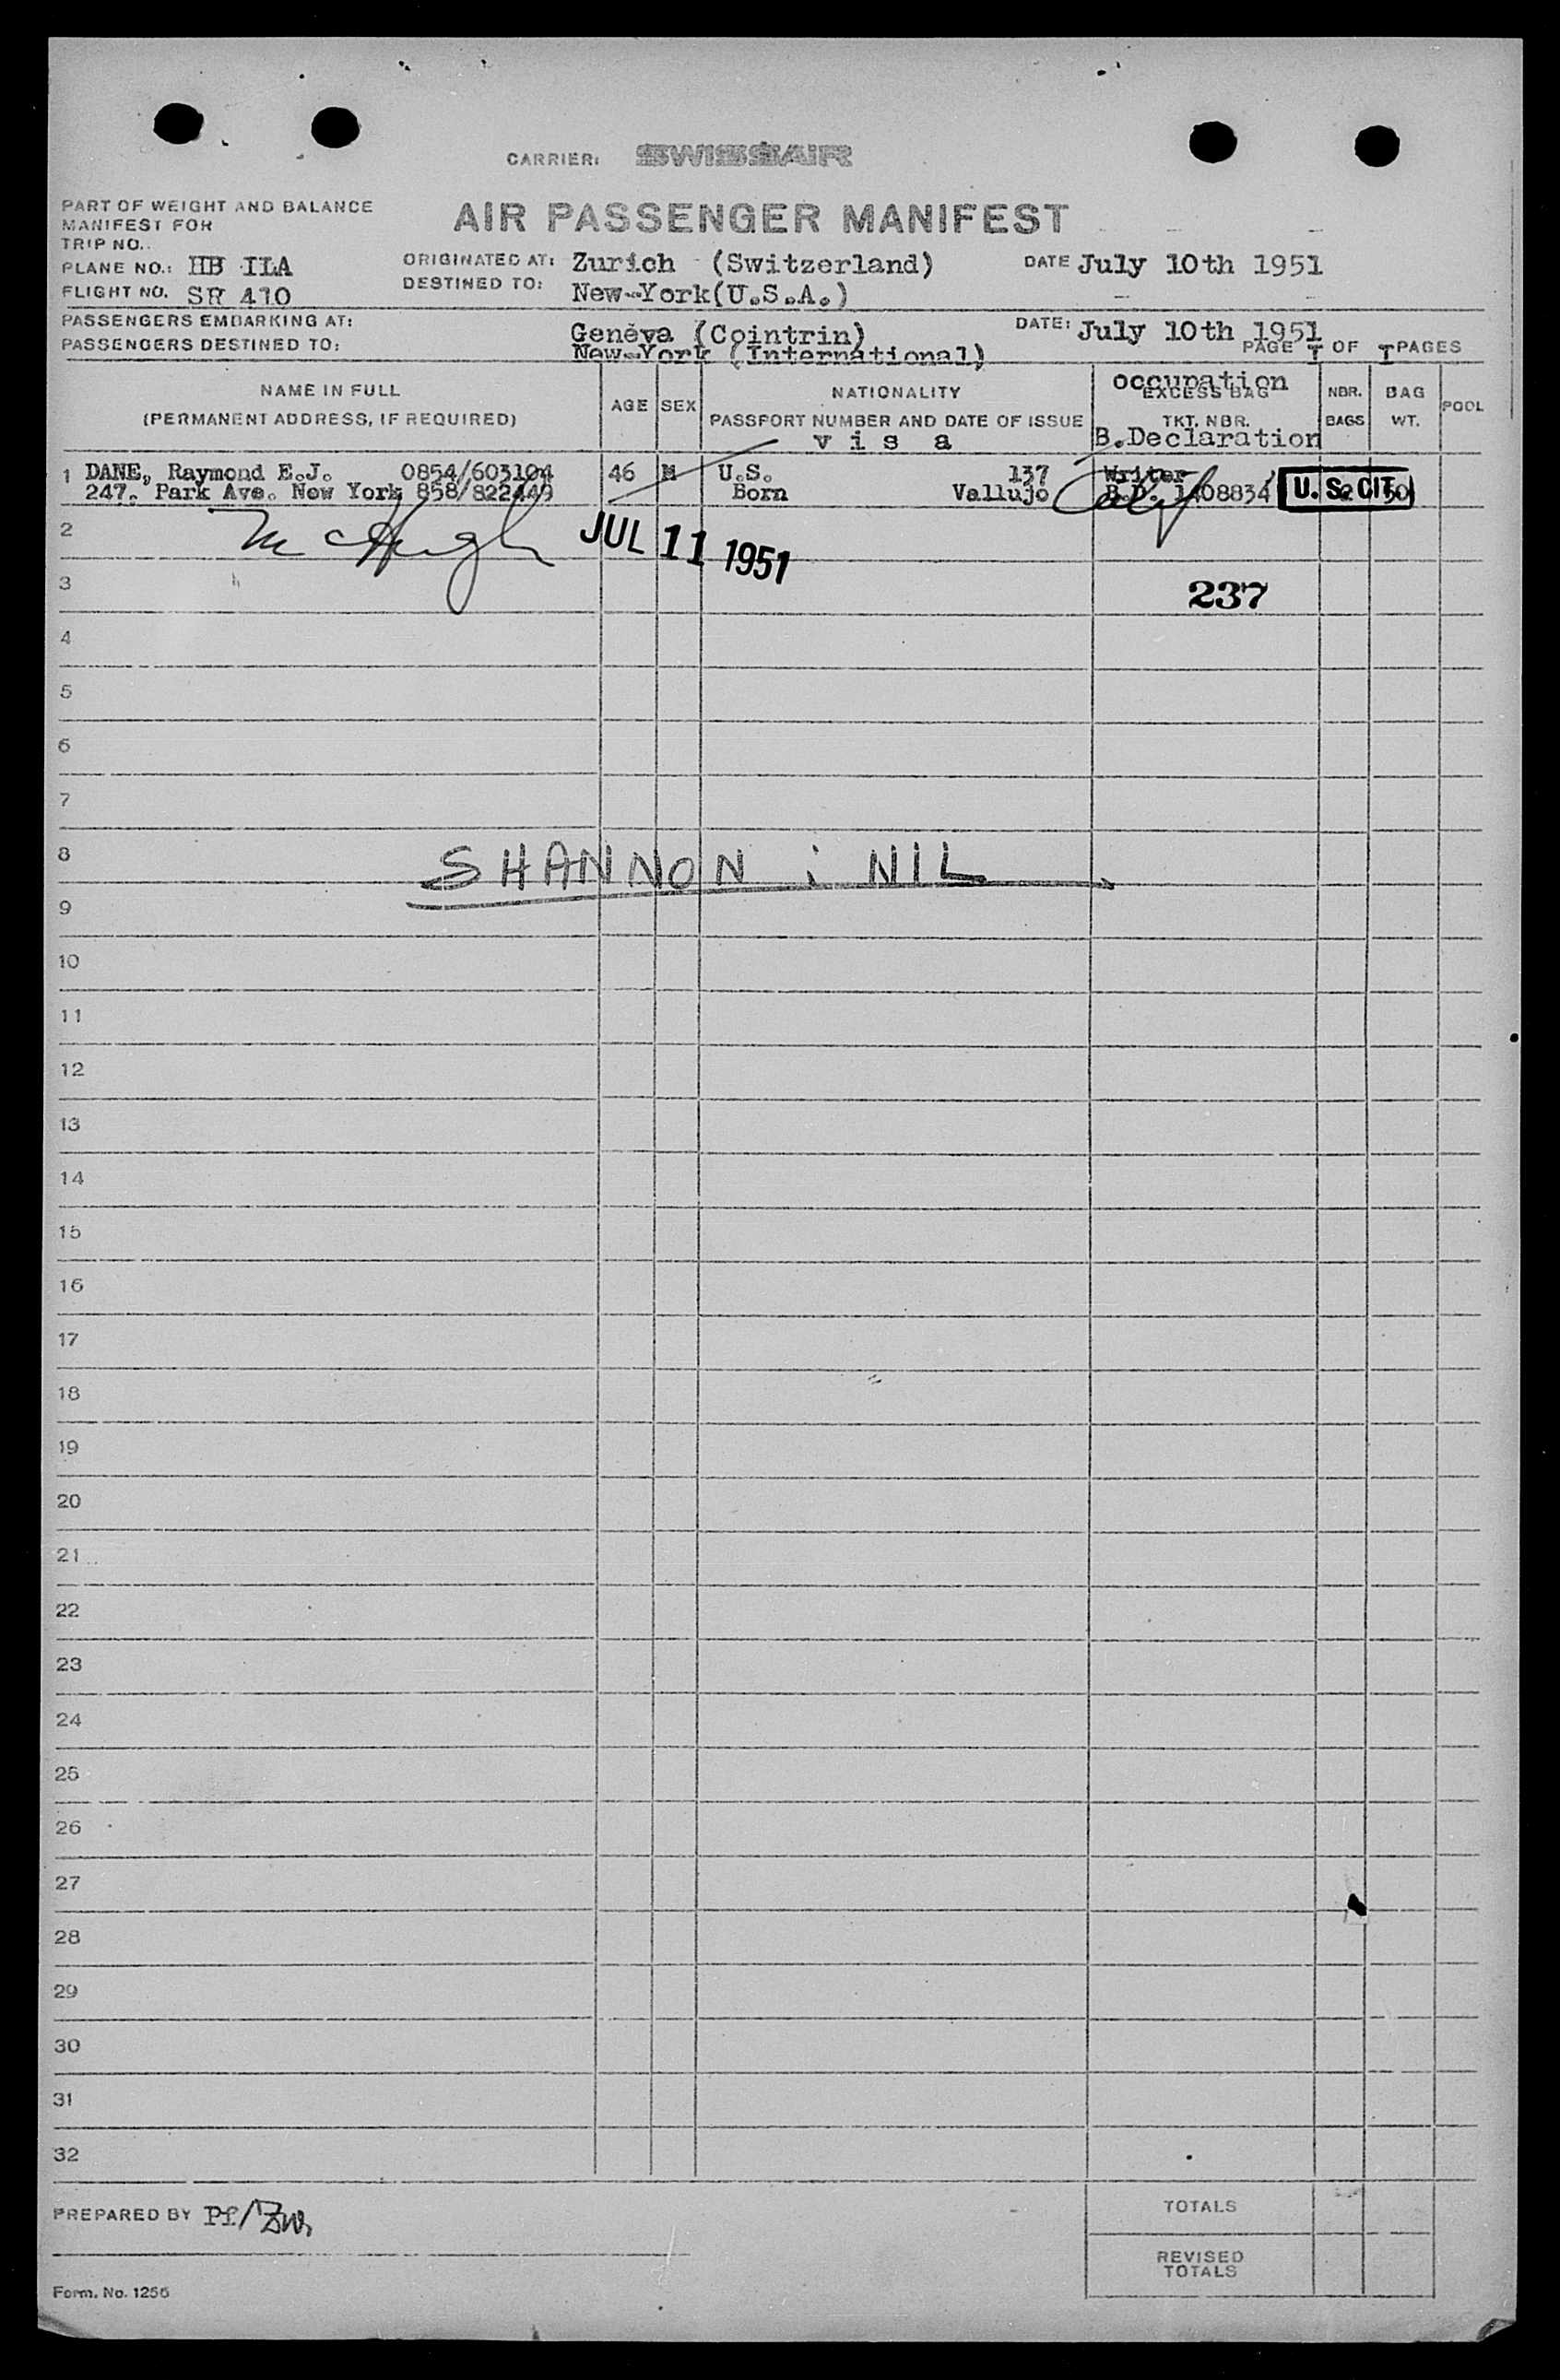 CARRIER: SWISSAIR
PART OF WEIGHT AND BALANCE
MANIFEST FOR
TRIP NO.
AIR PASSENGER MANIFEST
PLANE NO.: HB ILA
ORIGINATED AT: Zurich (Switzerland)
DATE July 10th 1951
FLIGHT NO. SR 410
DESTINED TO: New-York(U.S.A.)
PASSENGERS EMBARKING AT: Genéva (Cointrin)
DATE: July 10th 1951
PASSENGERS DESTINED TO: New-York (International)
PAGE I OF I PAGES
NAME IN FULL
(PERMANENT ADDRESS, IF REQUIRED)
AGE
SEX
NATIONALITY
PASSPORT NUMBER AND DATE OF ISSUE
v i s a
occupation
EXCESS BAG
TKT. NBR.
B.Declaration
NBR.
BAGS
BAG
WT.
POOL
1 DANE, Raymond E.J. 0854/603104 46 M U.S. 137 Writer
247. Park Ave. New York 858/822449 Born Vallujo Calif B.D. 1408834 U.S. CIT.
2 McHugh JUL 11 1951
3 237
4
5
6
7
8 SHANNON : NIL
9
10
11
12
13
14
15
16
17
18
19
20
21
22
23
24
25
26
27
28
29
30
31
32
PREPARED BY Pf/
TOTALS
REVISED
TOTALS
Form. No. 1256